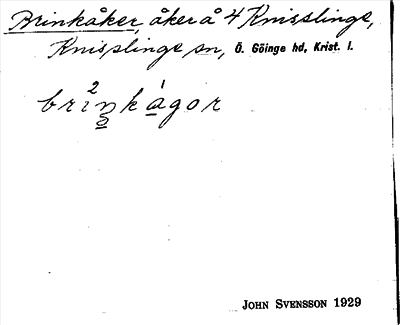 Brinkåker, åker å 4 Knisslinge,
Knisslinge sn, Ö. Göinge hd, Krist. l.
bri²nkágor
JOHN SVENSSON 1929